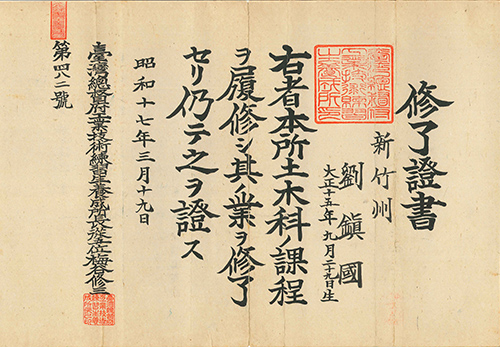 修了證書
新竹州
劉鎮國
大正十五年九月二十九日生
右者本所土木科ノ課程
ヲ履修シ其ノ業ヲ修了
セリ仍テ之ヲ證ス
昭和十七年三月十九日
臺灣總督府工業技術練習生養成所長從五位梅谷修三
第四八二號